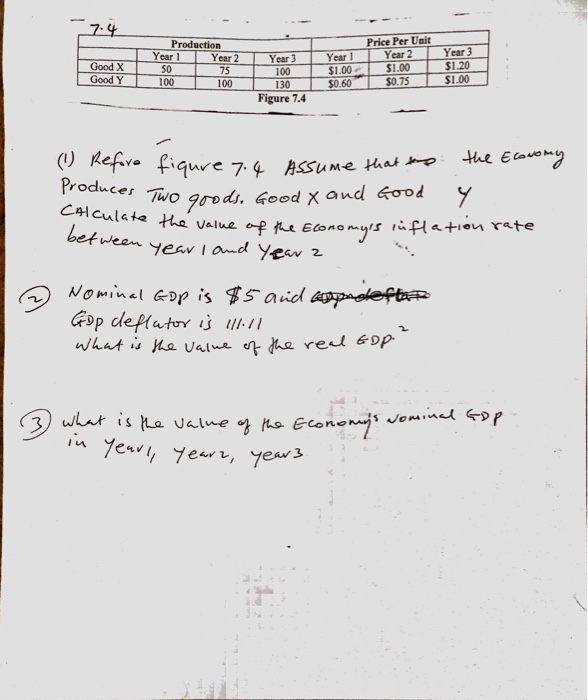 7.4
Production Price Per Unit
Year 1 Year 2 Year 3 Year 1 Year 2 Year 3
Good X 50 75 100 $1.00 $1.00 $1.20
Good Y 100 100 130 $0.60 $0.75 $1.00
Figure 7.4
(1) Refere figure 7.4 Assume that the Economy
Produces Two goods. Good X and Good Y
Calculate the value of the Economy's inflation rate
between year 1 and Year 2
(2) Nominal GDP is $5 and
GDP deflator is 111.11
what is the value of the real GDP?
(3) what is the value of the Economy's Nominal GDP
in Year 1, Year 2, year 3